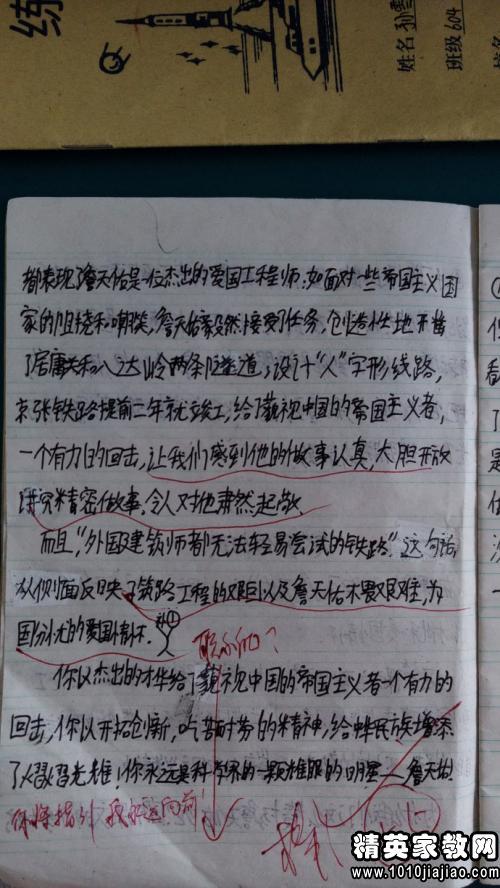 练
姓名 孙
班级 604
都表现了詹天佑是一位杰出的爱国工程师,如面对一些帝国主义国
家的阻挠和嘲笑,詹天佑毅然接受了任务,创造性地开凿
了居庸关和八达岭两条隧道,设计“人”字形线路,
京张铁路提前二年就竣工,给了藐视中国的帝国主义者,
一个有力的回击,让我们感到他的做事认真,大胆开放
讲究精密做事,令人对他肃然起敬.
而且,“外国建筑师都无法轻易尝试的铁路”这句话,
从侧面反映了筑路工程的艰巨以及詹天佑不畏艰难,为
国分忧的爱国情怀.
你以杰出的才华给了藐视中国的帝国主义者一个有力的
回击,你以开拓创新,吃苦耐劳的精神,给中华民族增添
了熠熠光雄,你永远是科学界的一颗耀眼的明星——詹天佑.
你将指引我永远向前!
精英家教网
www.1010jiajiao.com